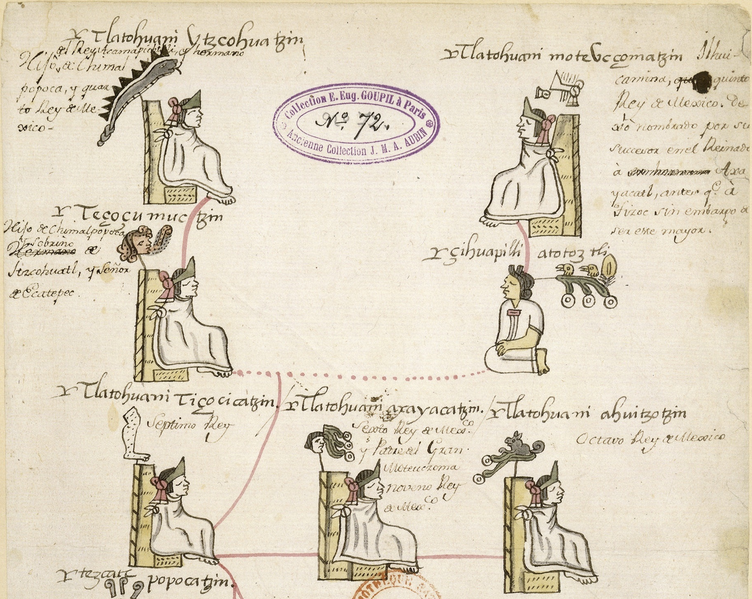 Tlatohuani Ytzcohuatzin
del Rey Acamapichtli, y hermano
Hijo de Chimal
popoca, y quar
to Rey de Me-
xico-
Tlatohuani moteucçomatzin Ilhui-
camina, quinto
Rey de Mexico. De-
xò nombrado por su
successor en el Reinado
a Axa
yacatl, antes q.e à
Tizoc sin embargo de
ser este mayor.
Collection E. Eug. GOUPIL à Paris
No 72.
Ancienne Collection J. M. A. AUBIN
Teçoçumuctzin
Hijo de Chimalpopoca
Sobrino de
Itzcohuatl, y Señor
de Ecatepec.
çihuapilli atotoztli
Tlatohuani Tiçoçicatzin.
Septimo Rey
Tlatohuani axayacatzin.
Sexto Rey de Mexco.
y Padre del Gran
Moteuczoma
noveno Rey
de Mexco.
Tlatohuani ahuitzotzin
Octavo Rey de Mexico
tezcatl popocatzin.